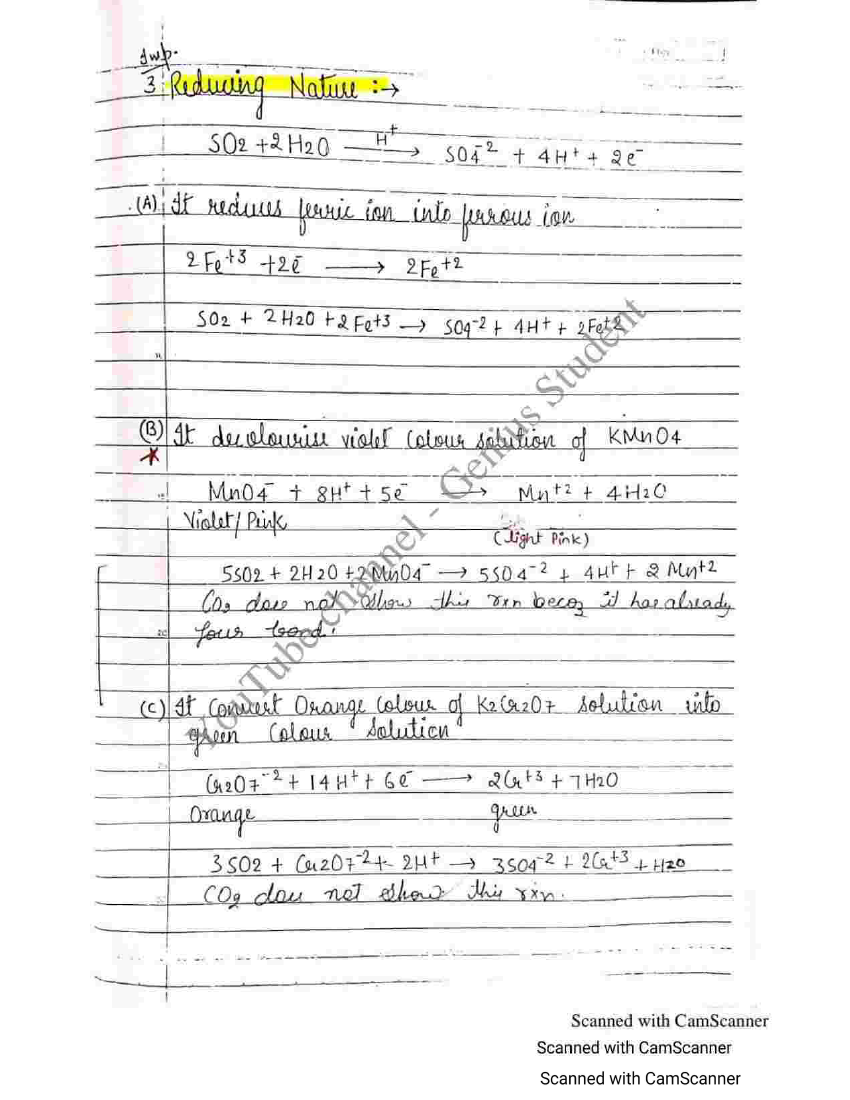 Imp.
3. Reducing Nature :→
SO2 + 2H2O —H+→ SO4-2 + 4H+ + 2e-
(A) It reduces ferric ion into ferrous ion
2Fe+3 + 2e- → 2Fe+2
SO2 + 2H2O + 2Fe+3 → SO4-2 + 4H+ + 2Fe+2
(B) It decolourise violet colour solution of KMnO4
MnO4- + 8H+ + 5e- → Mn+2 + 4H2O
Violet/Pink
(light Pink)
5SO2 + 2H2O + 2MnO4- → 5SO4-2 + 4H+ + 2Mn+2
CO2 does not show this rxn becoz it has already
four bond.
(C) It Convert Orange Colour of K2Cr2O7 solution into
green Colour Solution
Cr2O7-2 + 14H+ + 6e- → 2Cr+3 + 7H2O
Orange green
3SO2 + Cr2O7-2 + 2H+ → 3SO4-2 + 2Cr+3 + H2O
CO2 does not show this rxn.
YouTube channel - Genius Student
Scanned with CamScanner
Scanned with CamScanner
Scanned with CamScanner